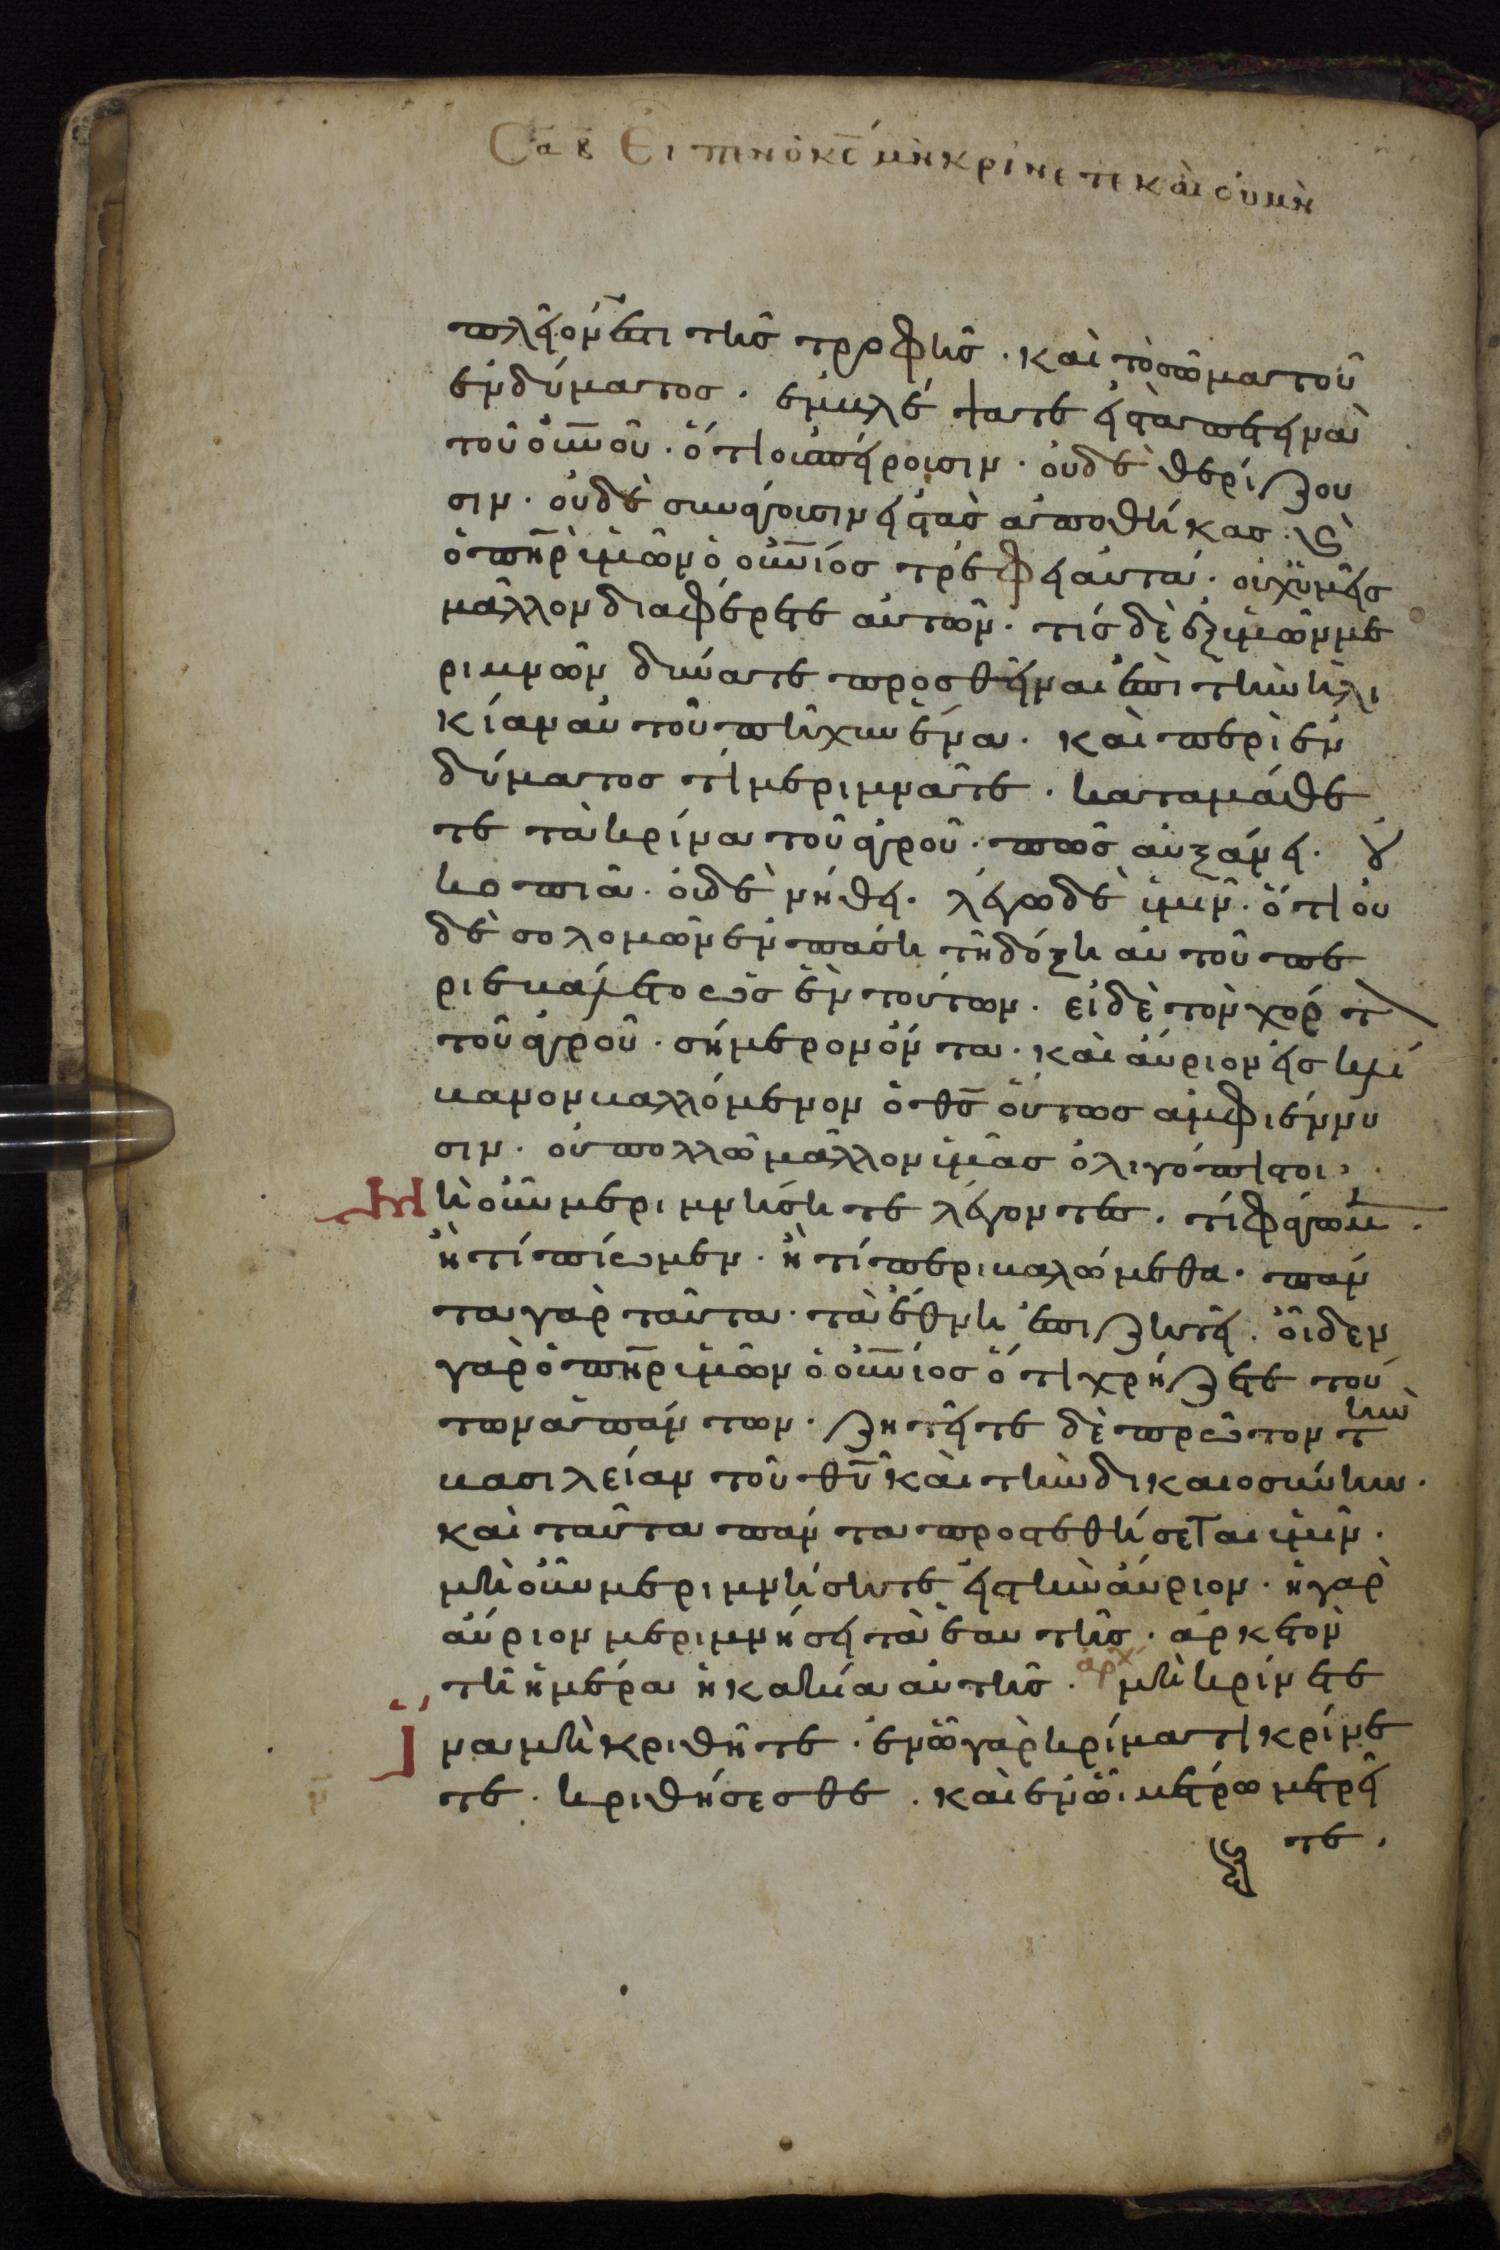 Σα β Ειπεν ο κς μη κρινετε και ου μη
πλεῖόν ἐστι τῆς τροφῆς · καὶ τὸ σῶμα τοῦ
ἐνδύματος · ἐμβλέψατε εἰς τὰ πετεινὰ
τοῦ οὐνοῦ · ὅτι οὐ σπείρουσιν · οὐδὲ θερίζου
σιν · οὐδὲ συνάγουσιν εἰς τὰς ἀποθήκας · κ
ὁ πηρ ὑμῶν ὁ οὐνιός τρέφει αὐτά · οὐχ ὑμεῖς
μᾶλλον διαφέρετε αὐτῶν · τίς δὲ ἐξ ὑμῶν με
ριμνῶν δύναται προσθεῖναι ἐπὶ τὴν ἡλι
κίαν αὐτοῦ πῆχυν ἕνα · καὶ περὶ ἐν
δύματος τί μεριμνᾶτε · καταμάθε
τε τὰ κρίνα τοῦ ἀγροῦ · πῶς αὐξάνει · οὐ
κοπιᾶ · οὐδὲ νήθει · λέγω δὲ ὑμῖν · ὅτι οὐ
δὲ σολομὼν ἐν πάσῃ τῇ δόξῃ αὐτοῦ πε
ριεβάλετο ὡς ἓν τούτων · εἰ δὲ τὸν χόρτ
τοῦ ἀγροῦ · σήμερον ὄντα · καὶ αὔριον εἰς κλί
βανον βαλλόμενον ὁ θς οὕτως ἀμφιέννυ
σιν · οὐ πολλῶ μᾶλλον ὑμᾶς ὀλιγόπιστοι ·
Μὴ οὖν μεριμνήσητε λέγοντες · τί φάγωμ ·
ἢ τί πίωμεν · ἢ τί περιβαλώμεθα · πάν
τα γὰρ ταῦτα · τὰ ἔθνη ἐπιζητεῖ · οἶδεν
γὰρ ὁ πηρ ὑμῶν ὁ οὐνιος ὅτι χρήζετε τού
των ἁπάντων · ζητεῖτε δὲ πρῶτον τὴν
βασιλείαν τοῦ θυ καὶ τὴν δικαιοσύνην ·
καὶ ταῦτα πάντα προστεθήσεται ὑμῖν ·
μὴ οὖν μεριμνήσητε εἰς τὴν αὔριον · ἡ γὰρ
αὔριον μεριμνήσει τὰ ἑαυτῆς · ἀρκετὸν
τῇ ἡμέρα ἡ κακία αὐτῆς · ἀρχ μὴ κρίνετε
ἵνα μὴ κριθῆτε · ἐν ὧ γὰρ κρίματι κρίνε
τε · κριθήσεσθε · καὶ ἐν ὧ μέτρω μετρεῖ
τε ·